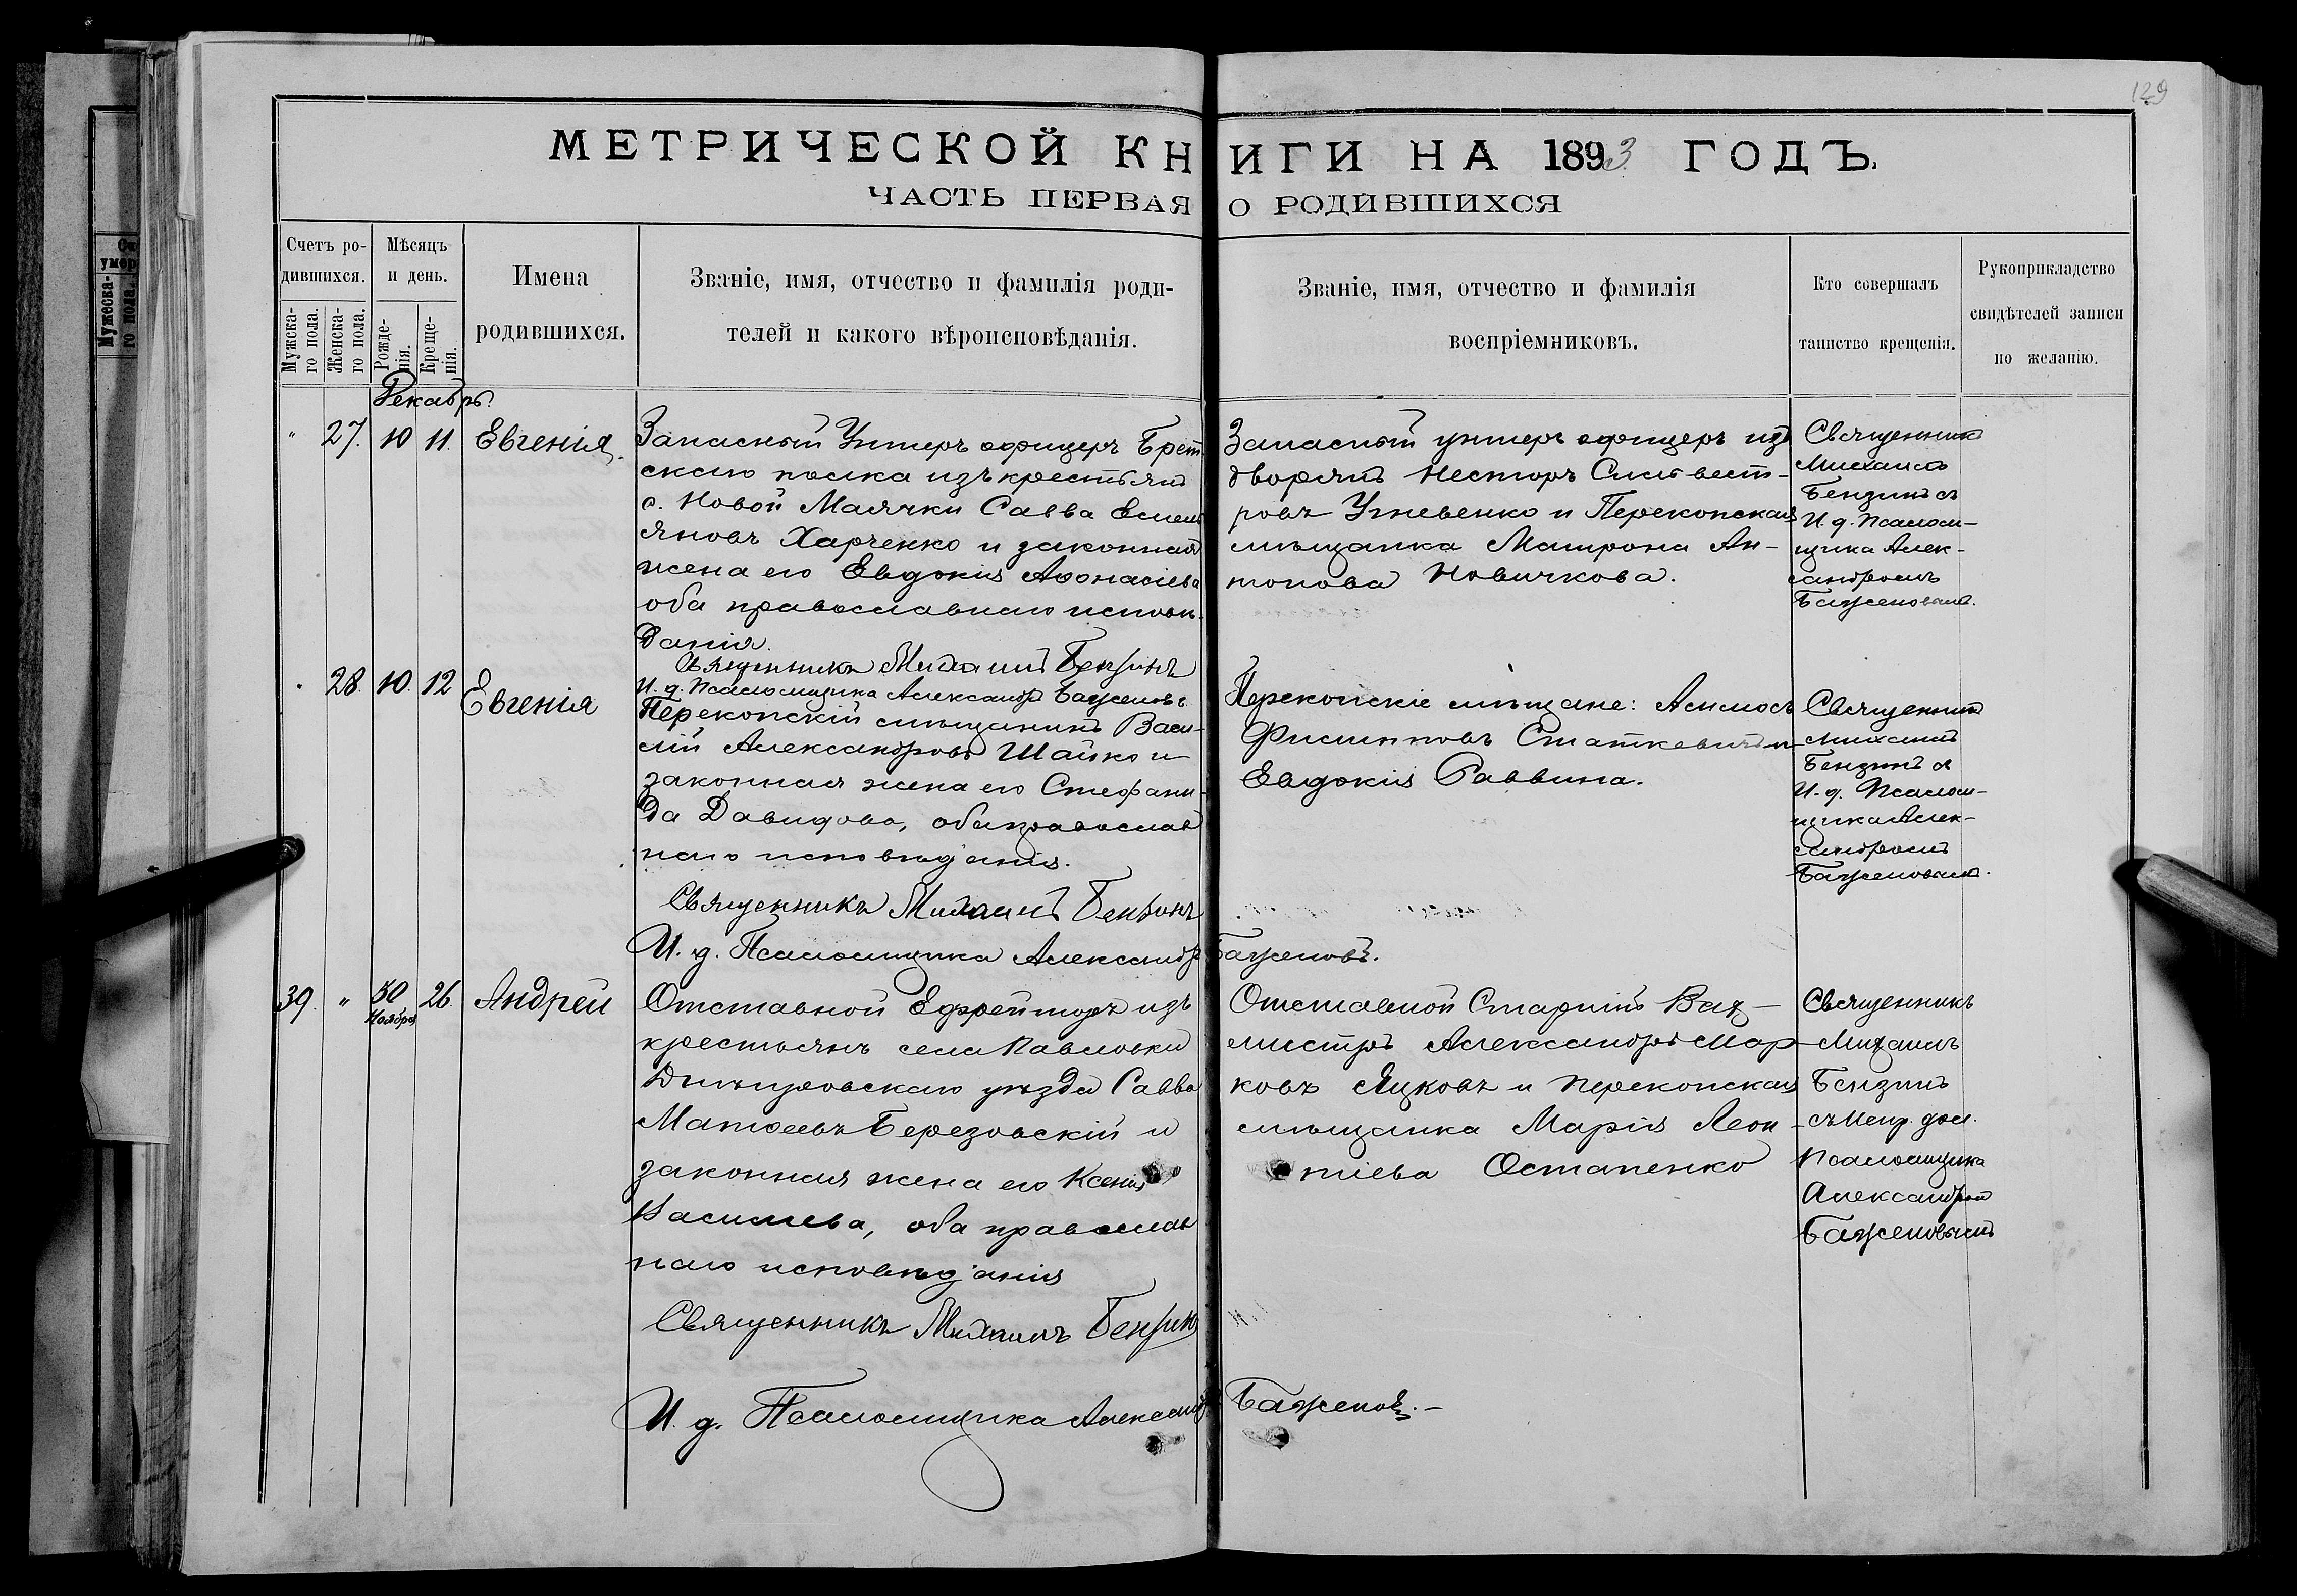 129
МЕТРИЧЕСКОЙ КНИГИ НА 1893 ГОДЪ.
ЧАСТЬ ПЕРВАЯ О РОДИВШИХСЯ
Счетъ ро-
дившихся.
Мужска-
го пола.
Женска-
го пола.
Мѣсяцъ
и день.
Рожде-
нія.
Креще-
нія.
Имена
родившихся.
Званіе, имя, отчество и фамилія роди-
телей и какого вѣроисповѣданія.
Званіе, имя, отчество и фамилія
воспріемниковъ.
Кто совершалъ
таинство крещенія.
Рукоприкладство
свидѣтелей записи
по желанію.
Декабрь.
" 27. 10 11. Евгенія.
Запасный Унтеръ офицеръ
скаго полка изъ крестьянъ
с. Новой Маячки Савва Емель
яновъ Харченко и законная
жена его Евдокія Аѳонасіева
оба православнаго исповѣ-
данія.
Священникъ Михаилъ Бензинъ
И. д. Псаломщика Александръ Баженовъ
Запасный унтеръ офицеръ изъ
дворянъ Несторъ Сильвест-
ровъ и Перекопская
мѣщанка Матрона Ан-
тонова Новичкова.
Священникъ
Михаилъ
Бензинъ съ
И. д. Псалом-
щика Алек-
сандромъ
Баженовымъ.
28. 10. 12 Евгенія
Перекопскій мѣщанинъ Васи-
лій Александровъ Шайко и
законная жена его Стефани-
да Давидова, оба православ
наго исповѣданія.
Священникъ Михаилъ Бензинъ
И. д. Псаломщика Александръ Баженовъ.
Перекопскіе мѣщане:
Филипповъ Статкевичъ и
Евдокія Саввина.
Священникъ
Михаилъ
Бензинъ съ
И. д. Псалом-
щика Алек-
сандромъ
Баженовымъ.
39. " 30 26. Андрей
Ноября
Отставной Ефрейторъ изъ
крестьянъ села Павловки
Днѣпровскаго уѣзда Савва
Матѳеевъ Березовскій и
законная жена его Ксенія
Василіева, оба православ
наго исповѣданія
Священникъ Михаилъ Бензинъ
И. д. Псаломщика Александръ Баженовъ.-
Отставной Старшій Вах-
мистръ Александръ Мар
ковъ Яцковъ и Перекопская
мѣщанка Марія Леон-
тіева Остапенко
Священникъ
Михаилъ
Бензинъ
съ Испр. дол.
Псаломщика
Александромъ
Баженовымъ